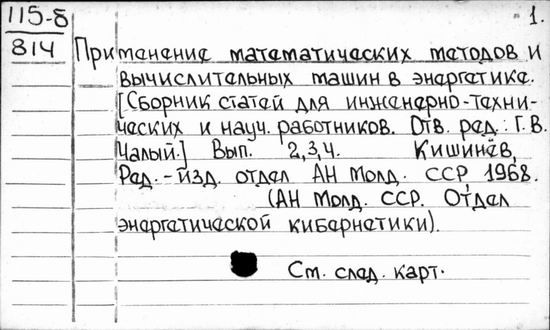 115-б
814
1.
Применение математических методов и
вычислительных машин в энергетике.
[Сборник статей для инженерно-техни-
ческих и науч. работников. Отв. ред.: Г.В.
Чалый.] Вып. 2,3,4. Кишинёв,
Ред.-изд. отдел АН Молд. ССР, 1968.
(АН Молд. ССР. Отдел
энергетической кибернетики).
См. след. карт.